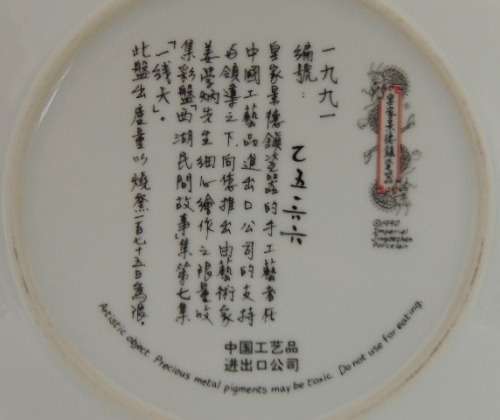 一九九一
編號：乙五六六
皇家景德鎮瓷器的手工藝者在
中國工藝品進出口公司的支持
与領導之下，向您推出由藝術家
姜學炳先生細心繪作之限量收
集彩盤「西湖民間故事」集第七集
「一线天」。
此盤出產量以燒窯一百七十五日為限。
皇家景德鎮瓷器
©1990
Imperial
Jingdezhen
Porcelain
中国工艺品
进出口公司
Artistic object. Precious metal pigments may be toxic. Do not use for eating.